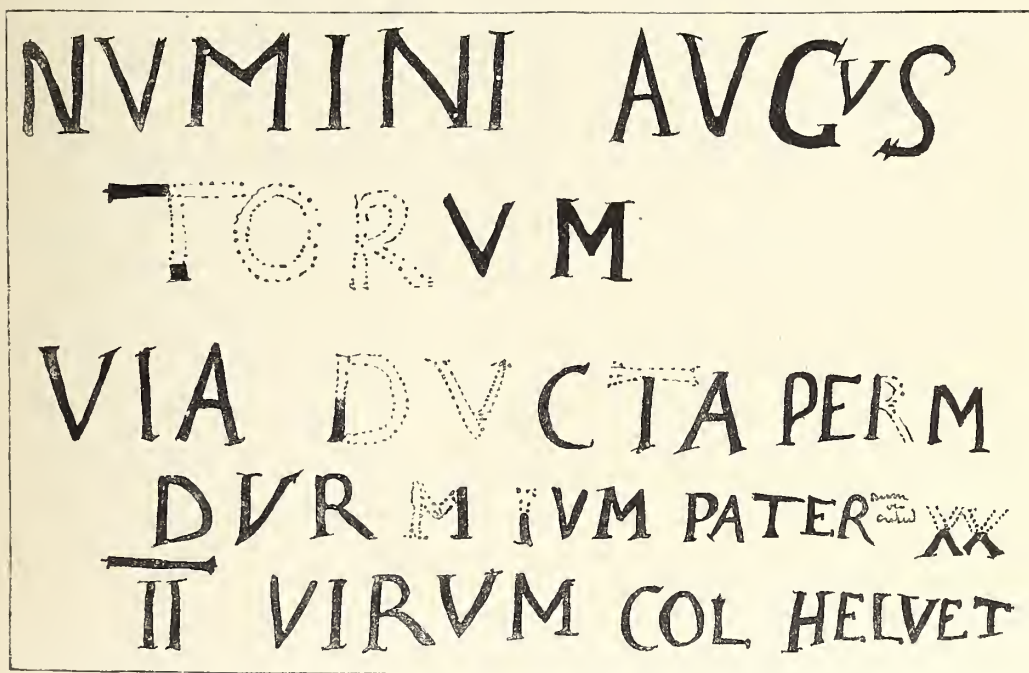 NVMINI AVGVS
TORVM
VIA DVCTA PER M
DVRMIVM PATER XX
II VIRVM COL HELVET